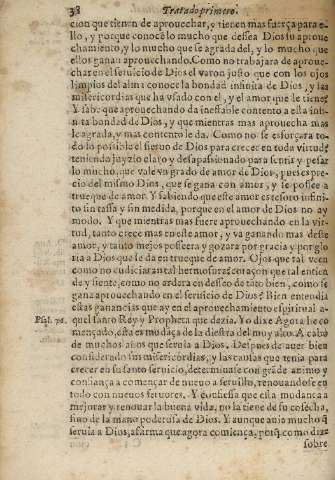 38 Tratado primero.
cion que tienen de aprouechar, y tienen mas fuerça para e-
llo, y porque conocē lo mucho que dessea Dios su aproue
chamiento, y lo mucho que se agrada del, y lo mucho que
ellos ganan aprouechando. Como no trabajara de aproue-
char en el seruicio de Dios el varon justo que con los ojos
limpios del alma conoce la bondad infinita de Dios, y las
misericordias que ha vsado con el, y el amor que le tiene?
Y sabe que aprouechando da inefable contento a esta infi-
nita bondad de Dios, y que mientras mas aprouecha mas
le agrada, y mas contento le da. Como no se esforçara to-
do lo possible el sieruo de Dios para crecer en toda virtud?
teniendo juyzio claro y desapassionado para sentir y pesar
lo mucho que vale vn grado de amor de Dios, pues es pre-
cio del mismo Dios, que se gana con amor, y se possee a
trueque de amor. Y sabiendo que este amor es tesoro infini-
to sin tassa y sin medida, porque en el amor de Dios no ay
modo. Y que mientras mas fuere aprouechando en la vir-
tud, tanto crece mas en este amor, y va ganando mas deste
amor, y tanto mejor posseera y gozara por gracia y por glo
ria a Dios que se da en trueque de amor. Ojos que tal veen
como no cudiciaran tal hermosura? coraçon que tal entien
de y siente, como no ardera en desseo de tāto bien, como se
gana aprouechando en el seruicio de Dios? Bien entendia
estas ganancias que ay en el aprouechamiento espiritual a-
Psal. 76. quel santo Rey y Propheta que dezia. Yo dixe Agora he co
mençado, esta es mudāça de la diestra del muy alto. A cabo
de muchos años que seruia a Dios. Despues de auer bien
considerado sus misericordias, y las causas que tenia para
crecer en su santo seruicio, determinase con grāde animo y
confiança a començar de nueuo a seruillo, renouandose en
todo con nueuos feruores. Y confiessa que esta mudança a
mejorar y renouar la buena vida, no la tiene de su cosecha,
sino de la mano poderosa de Dios. Y aunque auia mucho q̄
seruia a Dios, afirma que agora comiença, porq̄ como dize
sobre